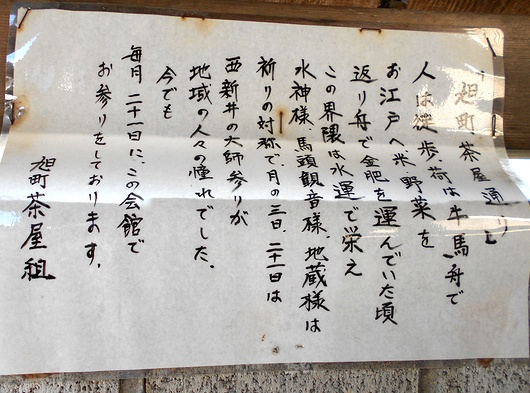 旭町 茶屋通り
人は徒歩、荷は牛馬舟で
お江戸へ米野菜を
返り舟で金肥を運んでいた頃
この界隈は水運で栄え
水神様、馬頭観音様、地蔵様は
祈りの対称で、月の三日、二十一日は
西新井の大師参りが
地域の人々の憧れでした。
今でも
毎月二十一日に、この会館で
お参りをしております。
旭町茶屋租